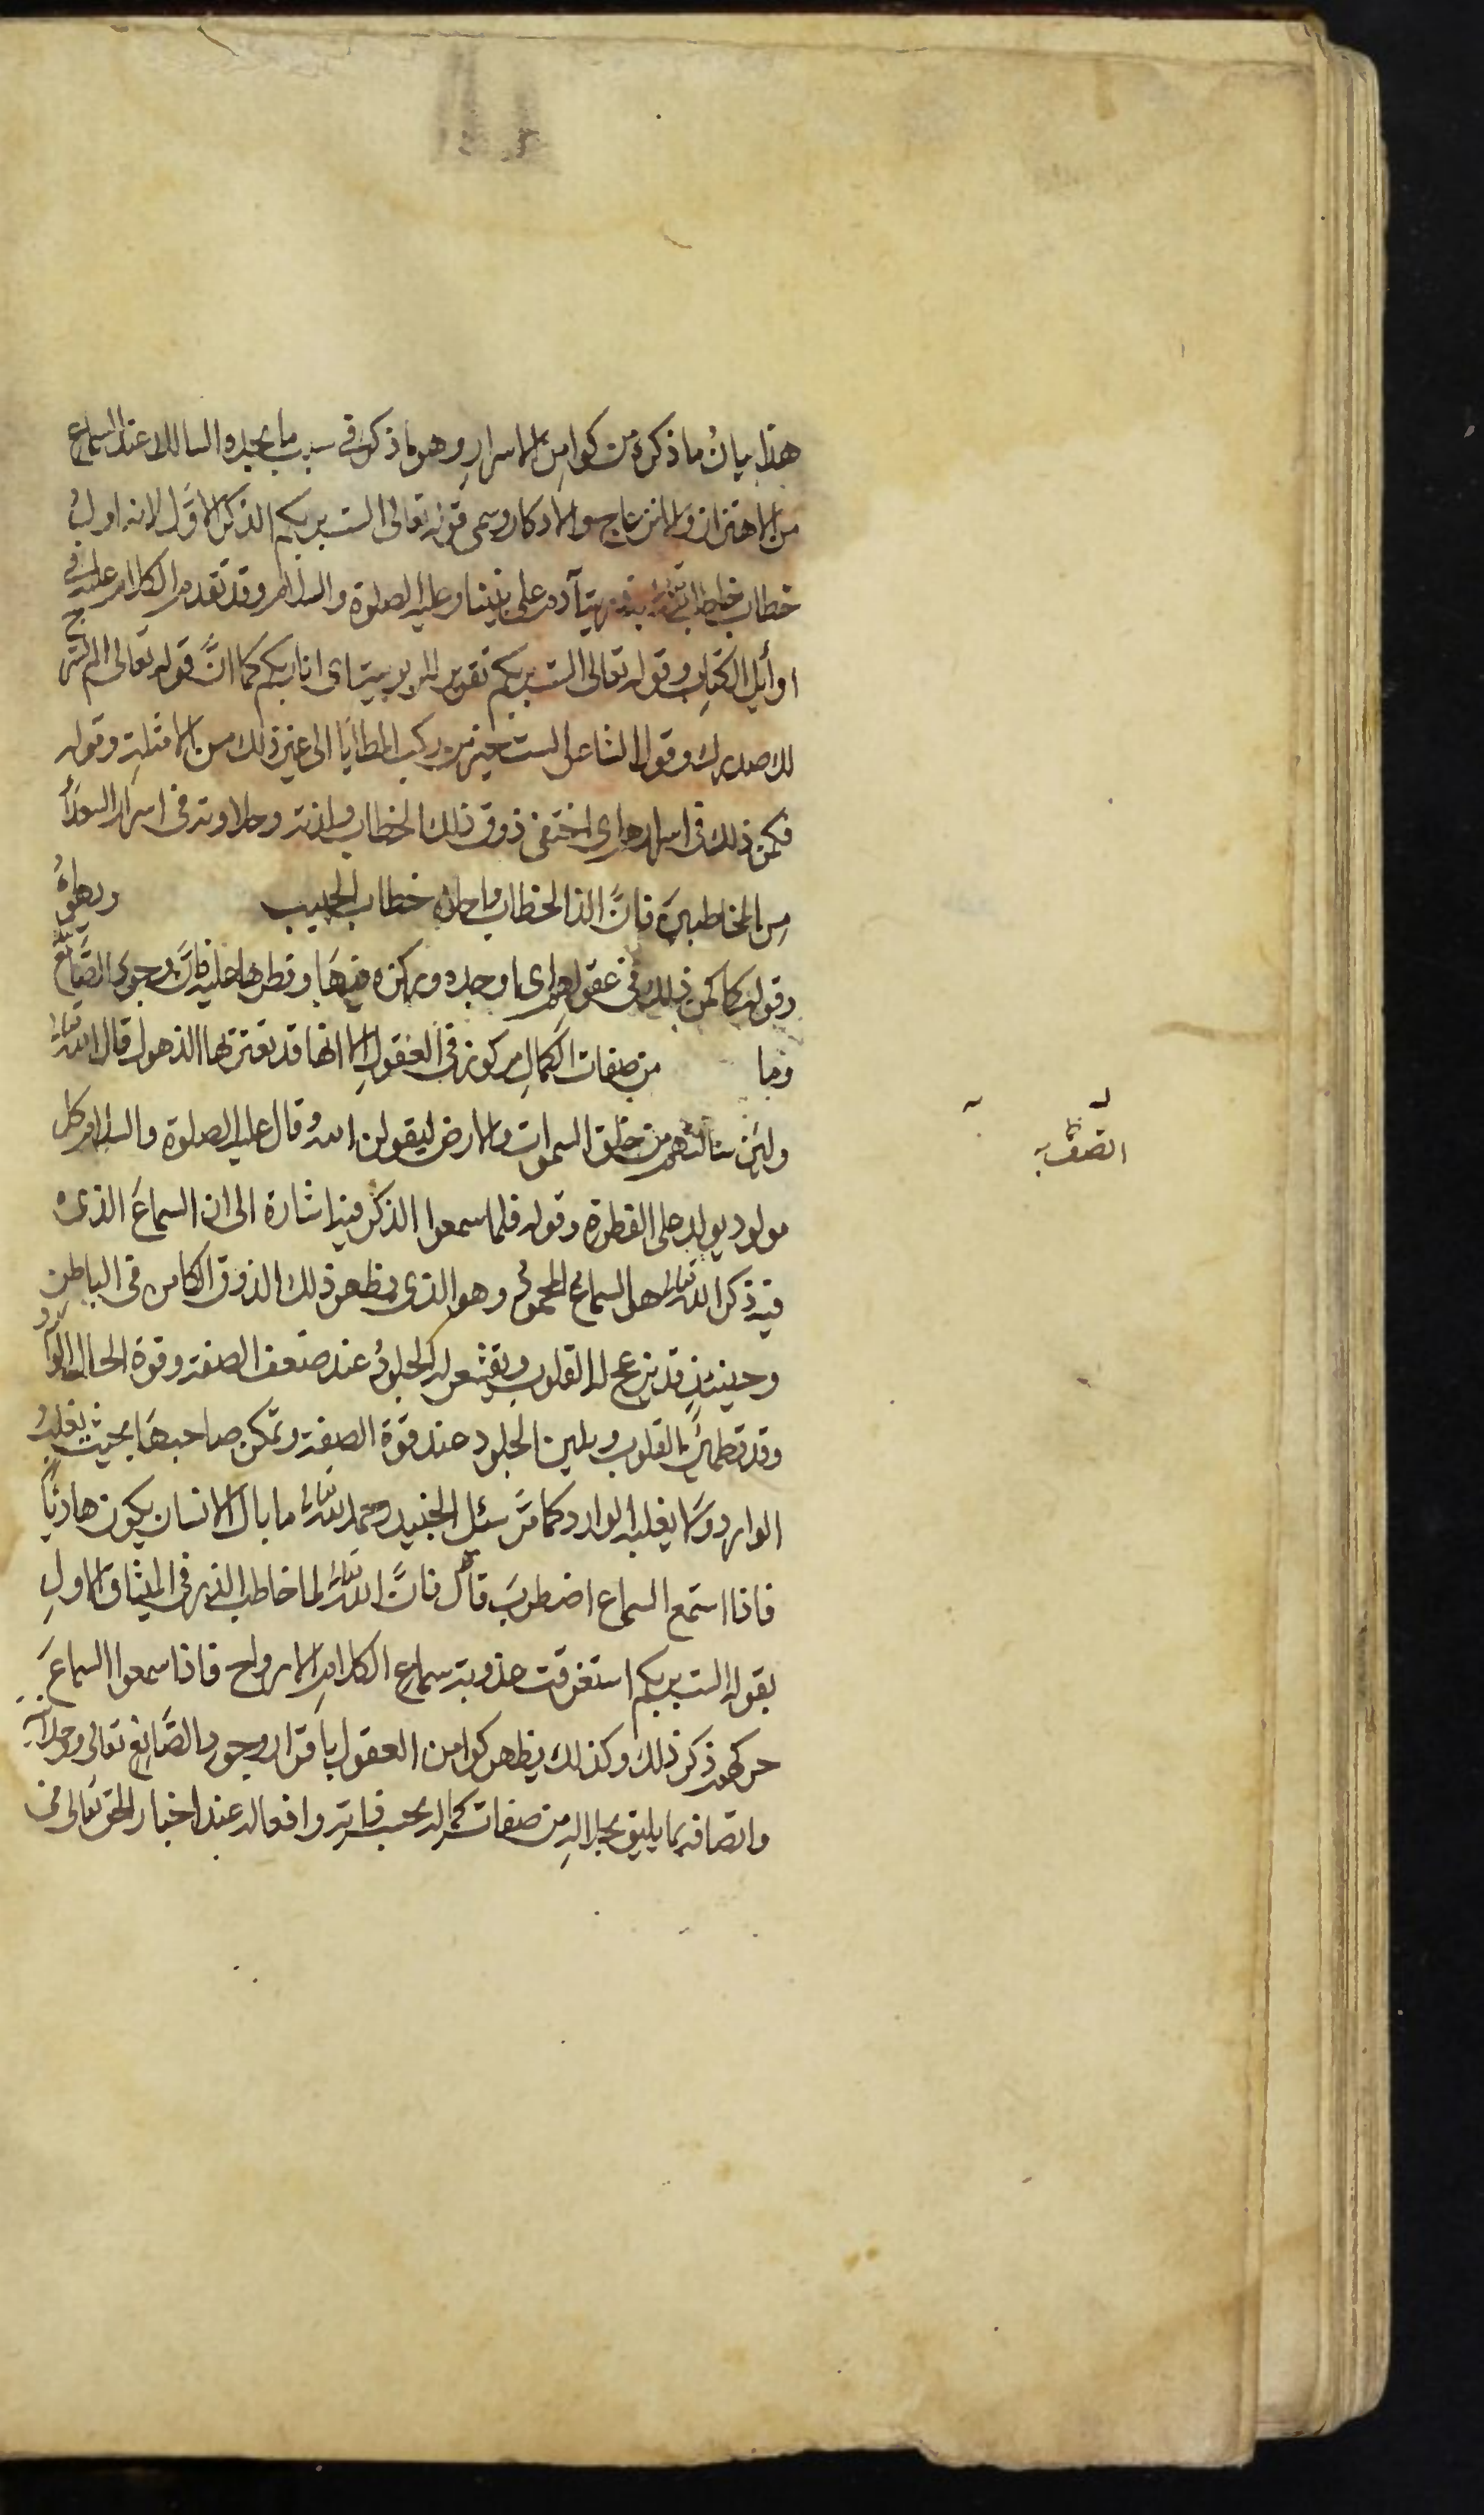 هذا بيانُ ما ذكره من كوامِن الاسرارِ وهو ما ذكره في سبب ما يجده السالك عند السماع
من الاهتزاز والانزعاج سوا الاذكار وسمى قوله تعالى الست بربكم الذكر الاوَّل لانه اول
خطاب خاطب الله تعالى به ذرية آدم على نبينا وعليه الصلوة والسلام وقد تقدم الكلام عليه في
اوائل الكتابِ وقوله تعالى الست بربكم تقرير للربوبية اى انا ربكم كما انَّ قوله تعالى الم نشرح
لك صدرك وقول الشاعر الستم خير من ركب المطايا الى غير ذلك من الامثلةِ وقوله
فكمن ذلك في اسرارهم اى اختفى ذوق ذلك الخطاب ولذته وحلاوته في اسرار السعداء
مِن المخاطبينَ فانَّ الذ الخطاب واحلاه خطاب الحبيب
وقوله كما كمن ذلك في عقولهم اى ما وجده وركزه فيهَا وفطرها عليه فانَّ وجودَ الصَّانع
وما من صفات الكمالِ مركوز في العقولِ الا انها قد يعتريها الذهول قال الله تعالى
ولئن سالتهم من خلق السموات والارض ليقولن الله وقال عليه الصلوة والسلام كل
مولود يولد على الفطرة وقوله فلما سمعوا الذكر فيه اشارة الى ان السماعَ الذى
فيه ذكر الله تعالى هو السماع المحمودُ وهو الذى يظهر ذلك الذوق الكامن في الباطنِ
وحينئذٍ قد ينزعج له القلوب ويقشعر له الجلودُ عند ضعف الصفة وقوة الحال الوارد
وقد تطمئن القلوب ويلين الجلود عند قوة الصفة وتمكن صاحبهَا بحيث يغلبُ
الوارد ولا يغلبه الوارد كما مَرَّ سئل الجنيد رحمه الله تعالى ما بال الانسان يكون هادئًا
فاذا استمع السماع اضطربَ قال فانَّ الله تعالى لما خاطب الذر في الميثاق الاولِ
بقوله الست بربكم استغرقت عذوبة سماعِ الكلامِ الارواح فاذا سمعوا السماعَ
حركهم ذكر ذلك وكذلك يظهر كوامن العقول باقرار وجود الصَّانع تعالى ووحدانيته
واتصافه بما يليق بجلالهِ من صفات كماله بحسب ذاته وافعاله عند اخبار الحق تعالى في